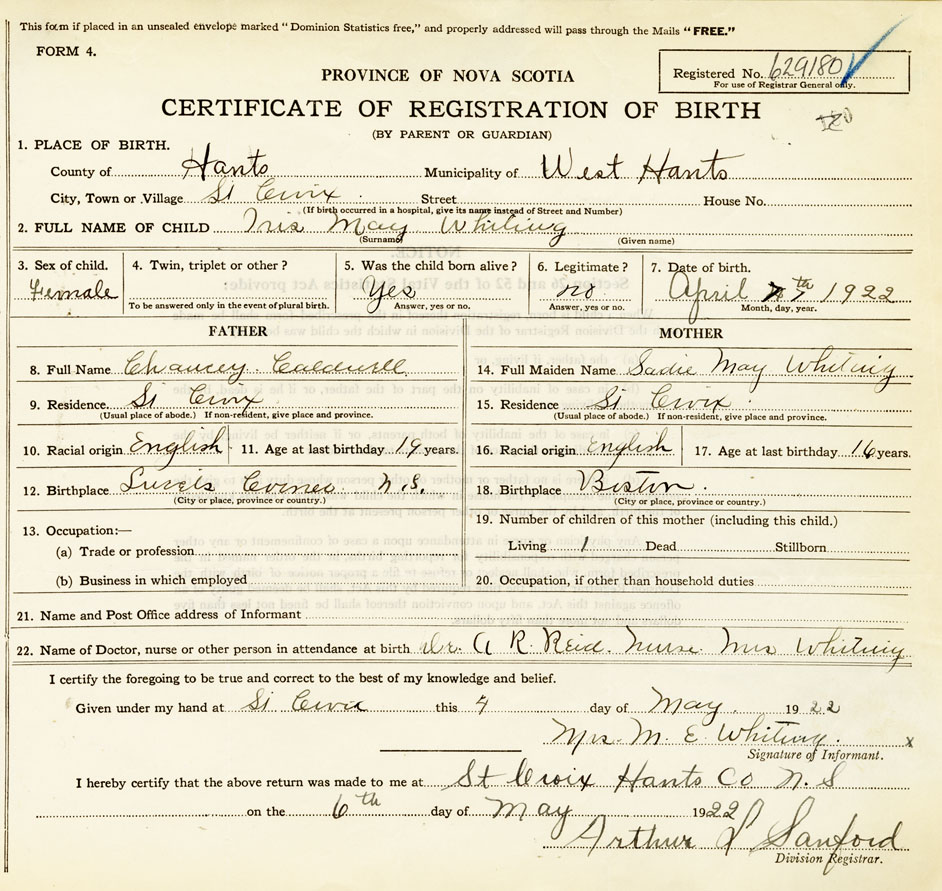 This form if placed in an unsealed envelope marked "Dominion Statistics free," and properly addressed will pass through the Mails "FREE."
FORM 4.
Registered No. 629180
For use of Registrar General only.
PROVINCE OF NOVA SCOTIA
CERTIFICATE OF REGISTRATION OF BIRTH
(BY PARENT OR GUARDIAN)
1. PLACE OF BIRTH.
County of Hants Municipality of West Hants
City, Town or Village St Croix Street House No.
(If birth occurred in a hospital, give its name instead of Street and Number)
2. FULL NAME OF CHILD Iris May Whiting
(Surname) (Given name)
3. Sex of child. 4. Twin, triplet or other? 5. Was the child born alive? 6. Legitimate? 7. Date of birth.
Female Yes no April 7th 1922
To be answered only in the event of plural birth. Answer, yes or no. Answer, yes or no. Month, day, year.
FATHER MOTHER
8. Full Name Chancey Caldwell 14. Full Maiden Name Sadie May Whiting
9. Residence St Croix 15. Residence St Croix
(Usual place of abode.) If non-resident, give place and province. (Usual place of abode.) If non-resident, give place and province.
10. Racial origin English 11. Age at last birthday 19 years. 16. Racial origin English 17. Age at last birthday 16 years.
12. Birthplace N.S. 18. Birthplace Boston.
(City or place, province or country.) (City or place, province or country.)
13. Occupation:— 19. Number of children of this mother (including this child.)
(a) Trade or profession Living 1 Dead Stillborn
(b) Business in which employed 20. Occupation, if other than household duties
21. Name and Post Office address of Informant
22. Name of Doctor, nurse or other person in attendance at birth Dr. A R. Reid. Nurse Mrs Whiting
I certify the foregoing to be true and correct to the best of my knowledge and belief.
Given under my hand at St Croix this 4 day of May 1922
Mrs. M. E. Whiting. x
Signature of Informant.
I hereby certify that the above return was made to me at St Croix Hants Co N.S
on the 6th day of May 1922
Arthur L Sanford
Division Registrar.